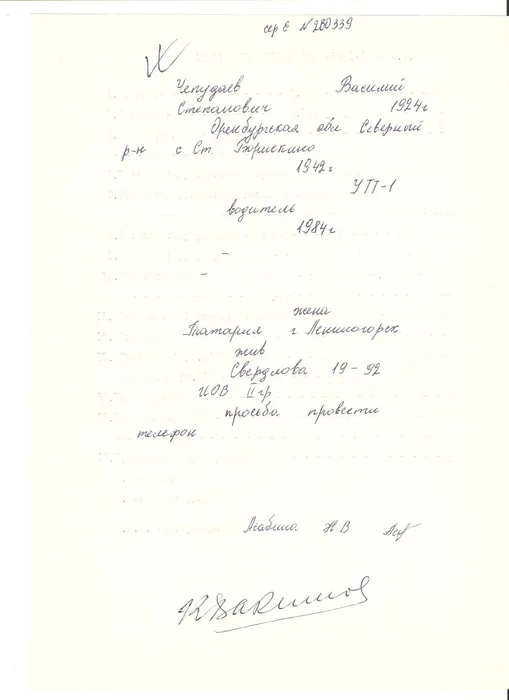 сер Е № 280339
Чепудаев Василий
Степанович 1924г
Оренбургская обл Северный
р-н с Ст. Борискино
1942г
УП-1
водитель
1984г
-
-
жена
Татария г Лениногорск
жив
Свердлова 19-92
ИОВ II гр
просьба провести
телефон
Агабина Н В